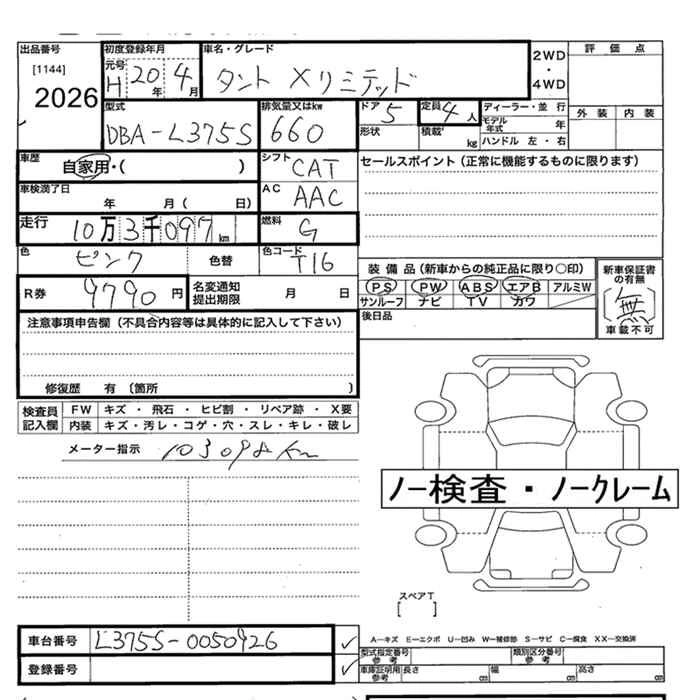 出品番号 初度登録年月 車名・グレード 2WD・4WD 評価点
[1144] 元号
2026 H 20年 4月 タント Xリミテッド
型式 排気量又はkw ドア 定員 ディーラー・並行 外装 内装
DBA-L375S 660 5 4人 モデル年式 年
形状 積載 kg ハンドル 左・右
車歴 自家用・( ) シフト CAT セールスポイント (正常に機能するものに限ります)
車検満了日 年 月( 日) AC AAC
走行 10万3千097km 燃料 G
色 ピンク 色替 色コード T16
装備品 (新車からの純正品に限り○印) 新車保証書の有無
R券 9790円 名変通知提出期限 月 日 PS PW ABS エアB アルミW
サンルーフ ナビ TV カワ 無
後日品 車載不可
注意事項申告欄 (不具合内容等は具体的に記入して下さい)
修復歴 有 〔箇所 〕
検査員記入欄 FW キズ・飛石・ヒビ割・リペア跡・X要
内装 キズ・汚レ・コゲ・穴・スレ・キレ・破レ
メーター指示 103098km
ノー検査・ノークレーム
スペアT
[ ]
車台番号 L375S-0050926 ✓ A-キズ E-エクボ U-凹み W-補修跡 S-サビ C-腐食 XX-交換済
型式指定番号 参考 類別区分番号 参考
登録番号 ✓ 車庫証明用 参考 長さ cm 幅 cm 高さ cm